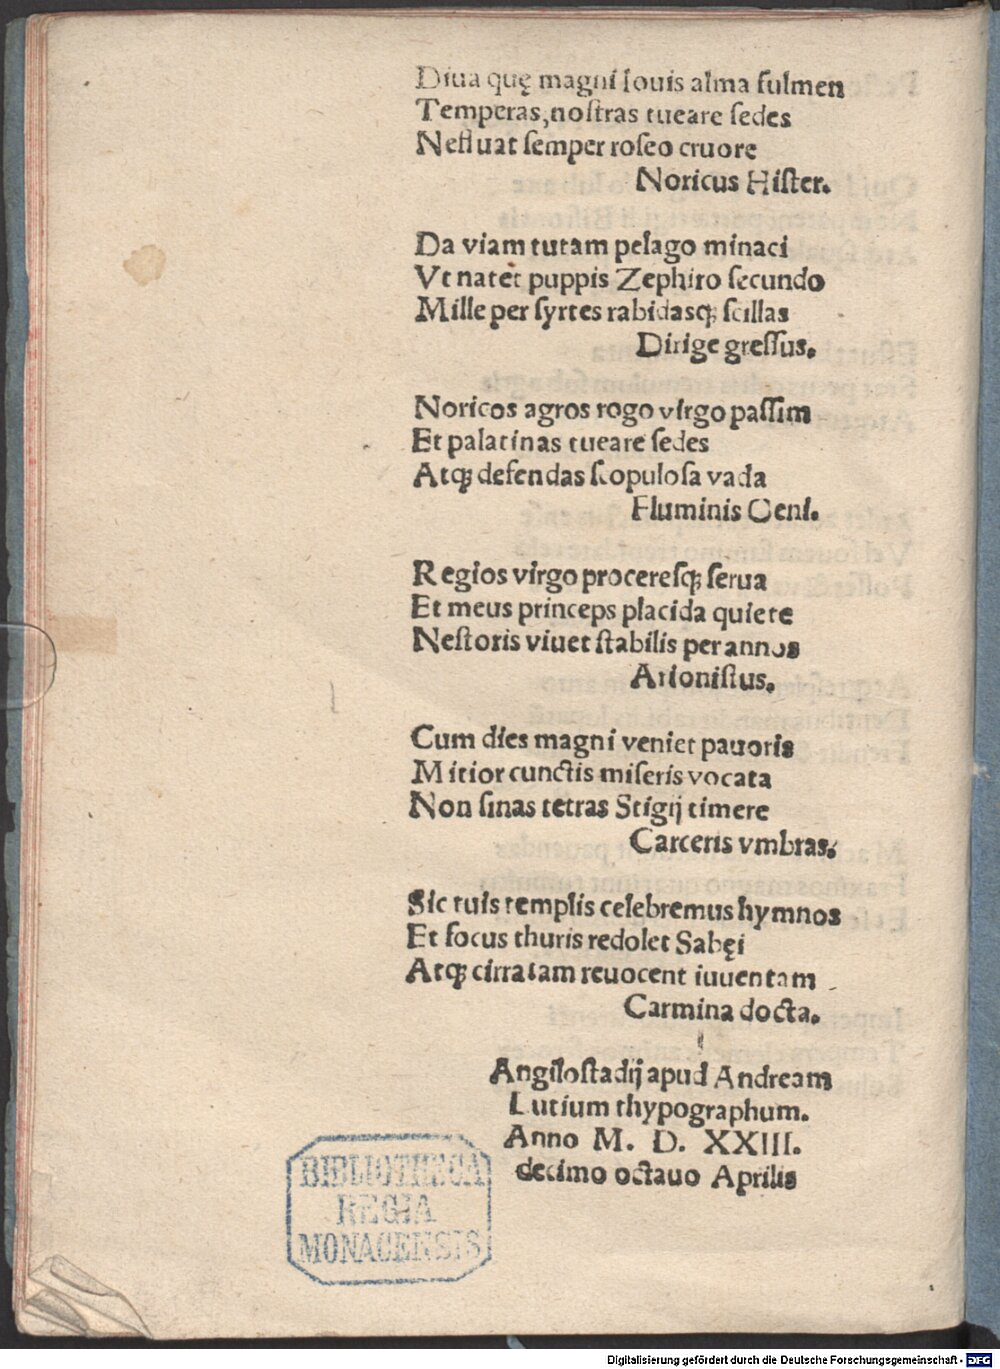 Diua quę magni Iouis alma fulmen
Temperas, noſtras tueare ſedes
Neſluat ſemper roſeo cruore
Noricus Hiſter.
Da viam tutam pelago minaci
Vt natet puppis Zephiro ſecundo
Mille per ſyrtes rabidasqꝫ ſcillas
Dirige greſſus.
Noricos agros rogo virgo paſſim
Et palatinas tueare ſedes
Atqꝫ defendas ſcopuloſa vada
Fluminis Oeni.
Regios virgo procereſqꝫ ſerua
Et meus princeps placida quiete
Neſtoris viuet ſtabilis per annos
Arioniſtus.
Cum dies magni veniet pauoris
Mitior cunctis miſeris vocata
Non ſinas tetras Stigij timere
Carceris vmbras.
Sic tuis templis celebremus hymnos
Et focus thuris redolet Sabęi
Atqꝫ cirratam reuocent iuuentam
Carmina docta.
Angiloſtadij apud Andream
Lutium thypographum.
Anno M. D. XXIII.
decimo octauo Aprilis
BIBLIOTHECA
REGIA
MONACENSIS
Digitalisierung gefördert durch die Deutsche Forschungsgemeinschaft - DFG